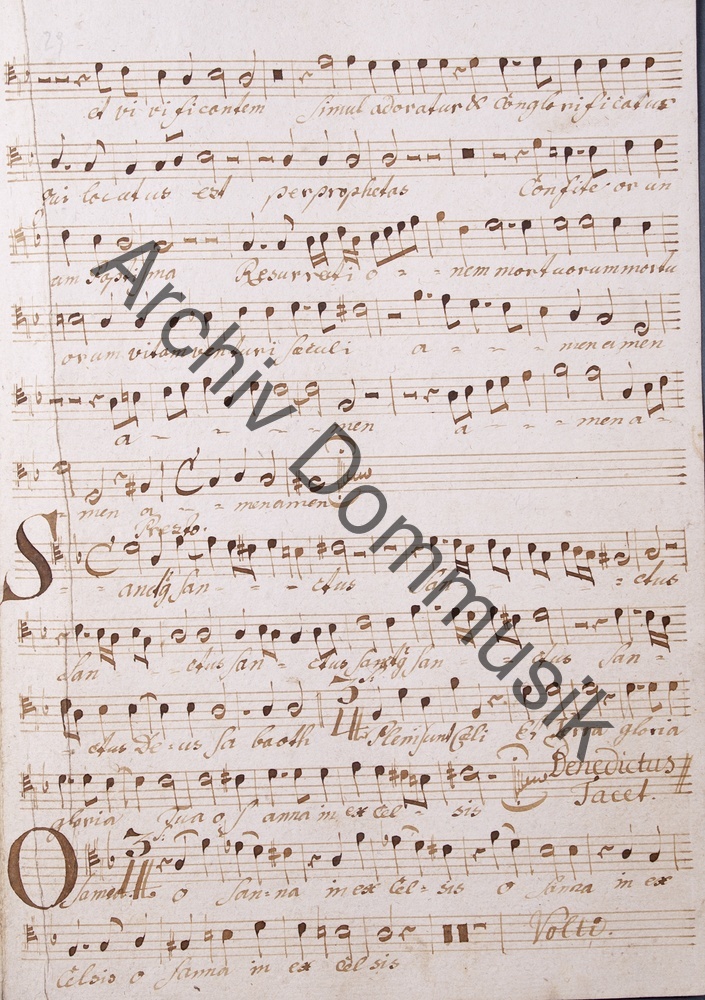 29
et vivificantem simul adoratur & Conglorificatus
qui locutus est per prophetas Confiteor un
um baptisma Resurrectio - - nem mortuorum mortu
orum vitam venturi saeculi a - - - men amen
a - - - - men a - - - men a -
- men a - - men amen
Presto.
Sanctus San - - - ctus San - - - ctus
San - - ctus San - ctus Sanctus San - - ctus San -
- ctus De-us Sabaoth 3/4 Pleni sunt Coeli et terra gloria
gloria Tua o Sanna in excel - sis Benedictus
Tacet.
Osanna 3/4 o San-na in ex Cel-sis o Sanna in ex
Celsis o Sanna in ex Celsis Volti.
Archiv Dommusik